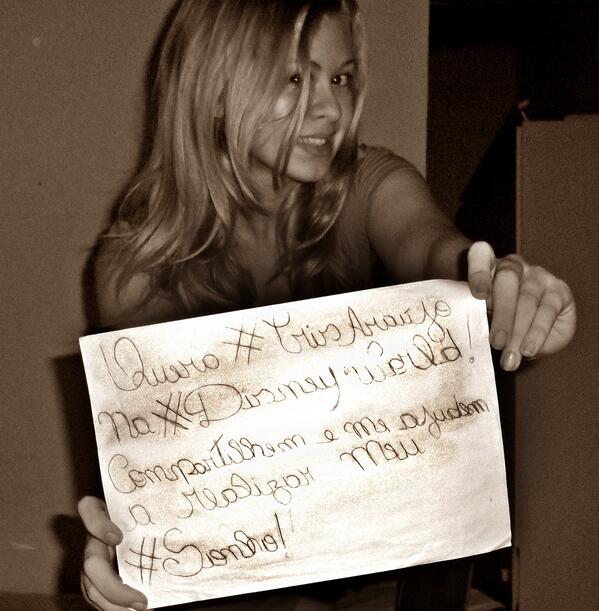 Quero #CrisAraujo
na #Disney World!
Compartilhem e me ajudem
a realizar meu
#Sonho!